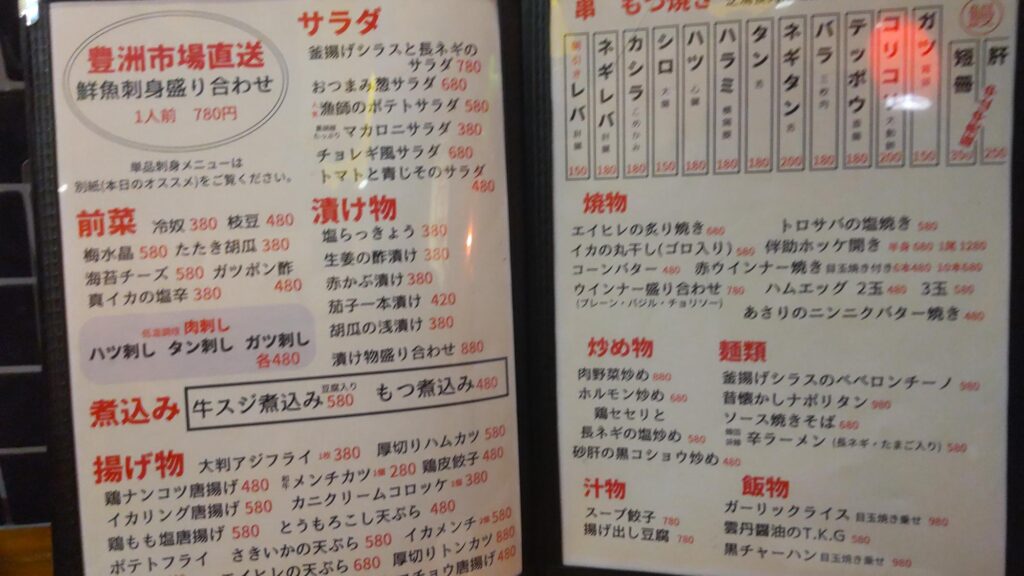 豊洲市場直送
鮮魚刺身盛り合わせ
1人前 780円
単品刺身メニューは
別紙(本日のオススメ)をご覧ください。
前菜 冷奴 380 枝豆 480
梅水晶 580 たたき胡瓜 380
海苔チーズ 580 ガツポン酢 480
真イカの塩辛 380
低温調理 肉刺し
ハツ刺し タン刺し ガツ刺し
各480
サラダ
釜揚げシラスと長ネギの
サラダ 780
おつまみ葱サラダ 680
漁師のポテトサラダ 580
マカロニサラダ 380
チョレギ風サラダ 680
トマトと青じそのサラダ
480
漬け物
塩らっきょう 380
生姜の酢漬け 380
赤かぶ漬け 380
茄子一本漬け 420
胡瓜の浅漬け 380
漬け物盛り合わせ 880
煮込み 牛スジ煮込み 豆腐入り 580 もつ煮込み 480
揚げ物 大判アジフライ 1枚 380 厚切りハムカツ 580
鶏ナンコツ唐揚げ 480 メンチカツ 1個 280 鶏皮餃子 480
イカリング唐揚げ 580 カニクリームコロッケ 1個 380
鶏もも塩唐揚げ 580 とうもろこし天ぷら 480
ポテトフライ さきいかの天ぷら 580 イカメンチ 2個 580
エイヒレの天ぷら 680 厚切りトンカツ 880
チョウ唐揚げ 480
串 もつ焼き
レバ 肝臓 150
ネギレバ 肝臓 180
カシラ こめかみ 180
シロ 大腸 150
ハツ 心臓 180
ハラミ 横隔膜 180
タン 舌 180
ネギタン 舌 200
バラ 三枚肉 180
テッポウ 直腸 180
コリコリ 大動脈 200
ガツ 150
鰻
短冊 350
肝 250
焼物
エイヒレの炙り焼き 680 トロサバの塩焼き 580
イカの丸干し(ゴロ入り) 580 伴助ホッケ開き 半身 680 1尾 1280
コーンバター 480 赤ウインナー焼き 目玉焼き付き 6本480 10本680
ウインナー盛り合わせ 780 ハムエッグ 2玉 480 3玉 580
(プレーン・バジル・チョリソー)
あさりのニンニクバター焼き 480
炒め物
肉野菜炒め 880
ホルモン炒め 680
鶏セセリと
長ネギの塩炒め 580
砂肝の黒コショウ炒め 480
麺類
釜揚げシラスのペペロンチーノ 980
昔懐かしナポリタン 980
ソース焼きそば 680
辛ラーメン (長ネギ・たまご入り) 580
汁物
スープ餃子 780
揚げ出し豆腐 780
飯物
ガーリックライス 目玉焼き乗せ 980
雲丹醤油のT.K.G 580
黒チャーハン 目玉焼き乗せ 980